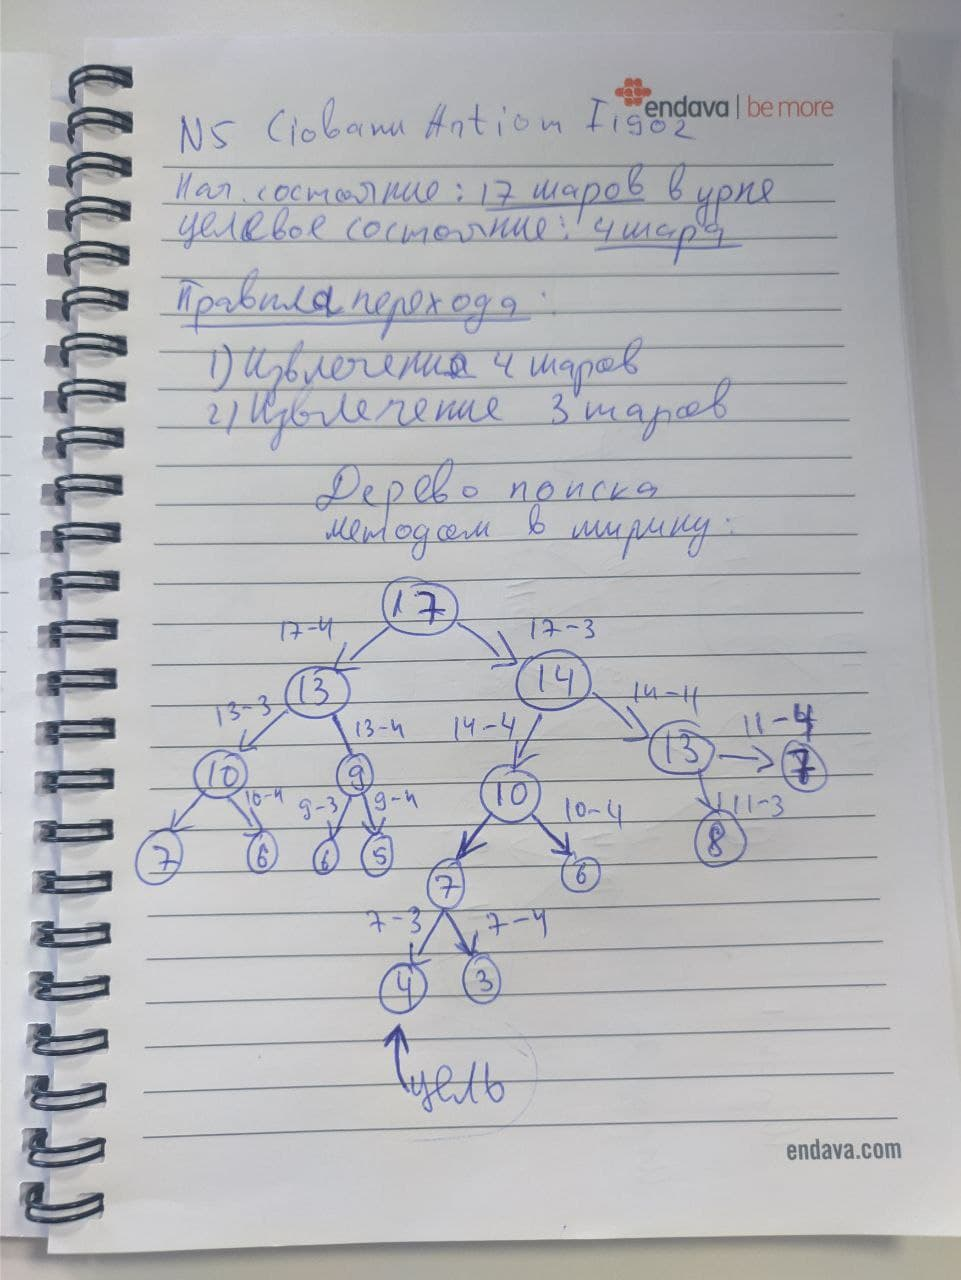 endava | be more
N5 Ciobanu Artiom I1902
Нач. состояние: 17 шаров в урне
целевое состояние: 4 шара
Правила перехода:
1) Извлечение 4 шаров
2) Извлечение 3 шаров
Дерево поиска
методом в ширину:
17
17-4 17-3
13 14
13-3 13-4 14-4 14-11 11-4
10 9 10 13 7
10-4 9-3 9-4 10-4 11-3
7 6 6 5 7 6 8
7-3 7-4
4 3
цель
endava.com